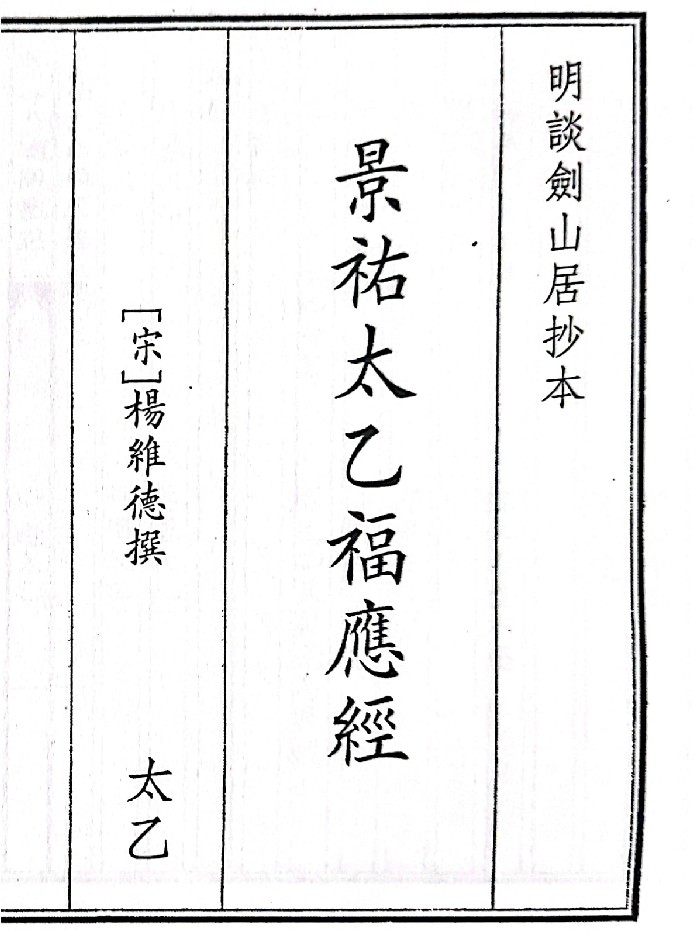 明談劍山居抄本
景祐太乙福應經
[宋]楊維德撰
太乙